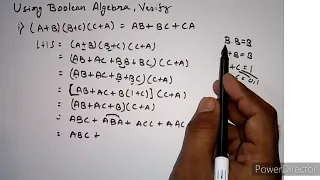 Using Boolean Algebra, Verify
i) (A+B)(B+C)(C+A) = AB+BC+CA
LHS = (A+B)(B+C)(C+A)
= (AB+AC+BB+BC)(C+A)
= (AB+AC+B+BC)(C+A)
= [AB+AC+B(1+C)](C+A)
= (AB+AC+B)(C+A)
= ABC + ABA + ACC + AAC
= ABC +
B.B=B
+B=B
+C=1
PowerDirector